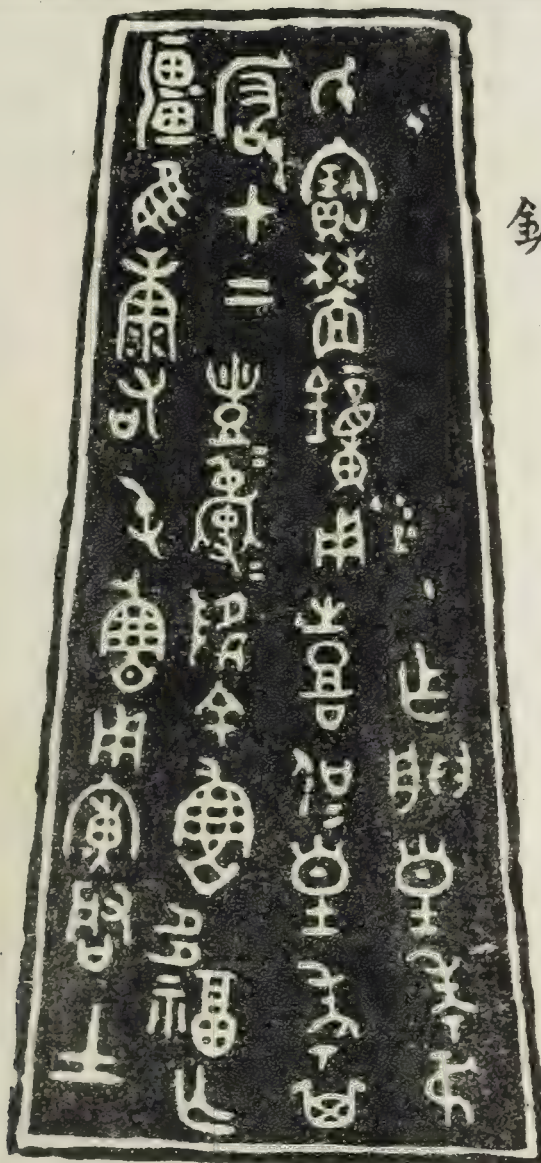 乍朕皇考弔
氏寶林鐘用喜侃皇考其
嚴才上豐=𣶃=降余魯多福亡
疆隹康右屯魯用廣啟士